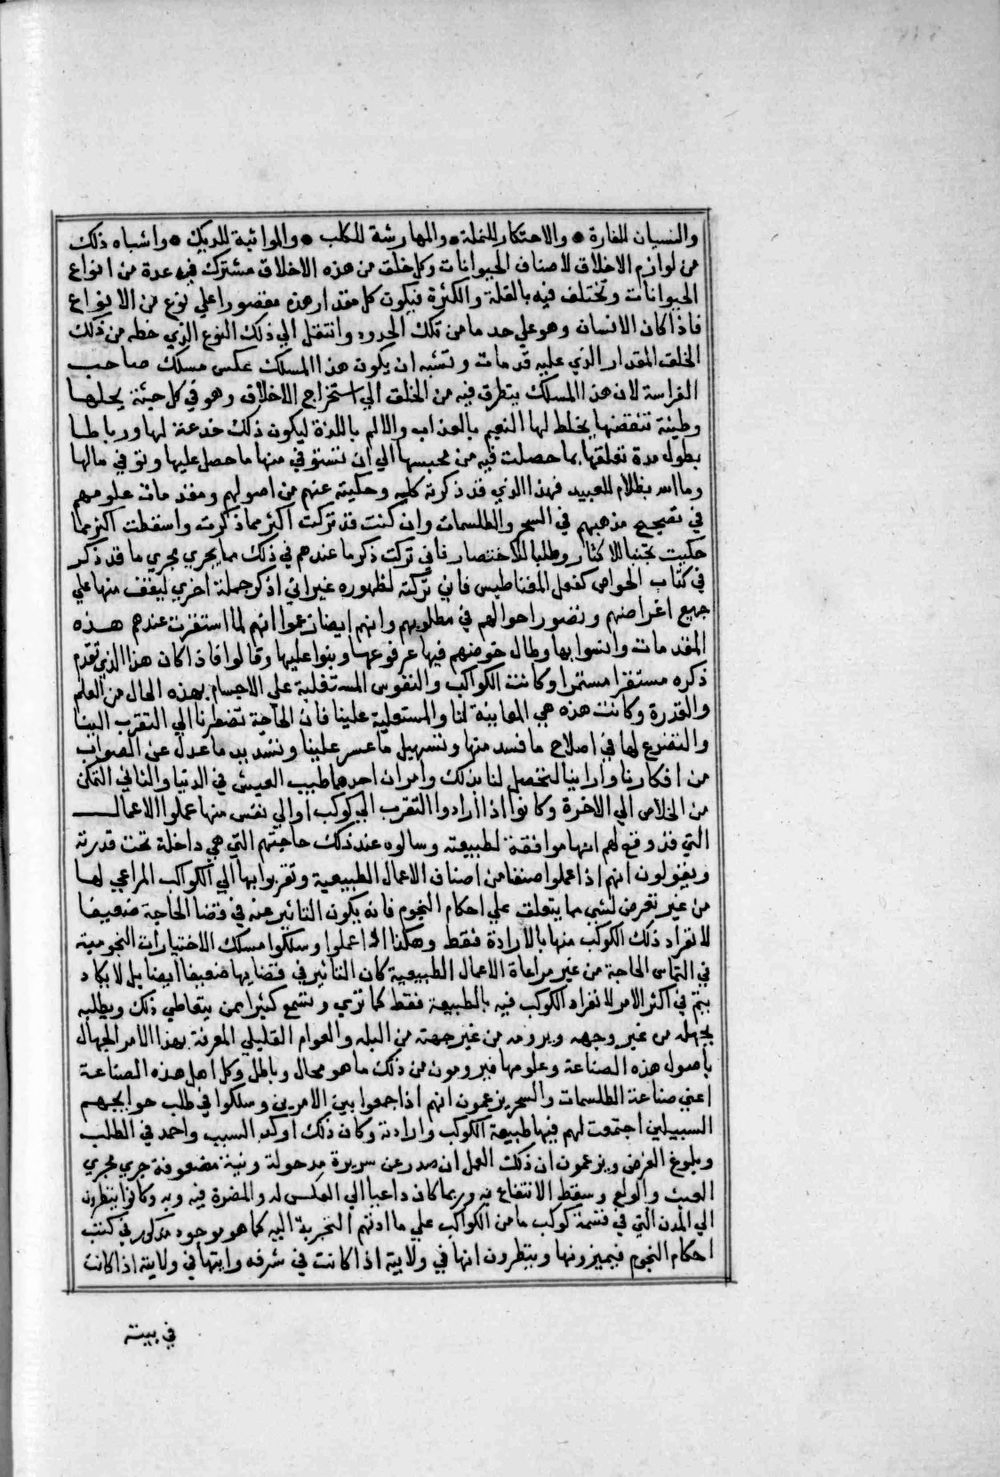 والنسيان للفارة • والاحتكار للنملة • والمهارشة للكلب • والمواثبة للديك • واشباه ذلك
من لوازم الاخلاق لاصناف الحيوانات وكل خلق من هذه الاخلاق مشترك فيه عدة من انواع
الحيوانات وتختلف فيه بالقلة والكثرة فيكون كل مقدار منه مقصورا علي نوع من الانواع
فاذا كان الانسان وهو علي حد ما من تلك الحدود وانتقل الي ذلك النوع الذي حظه من ذلك
الخلق المقدار الذي عليه قد مات ونشبه ان يكون هذا المسلك عكس مسلك صاحب
الفراسة لان هذا المسلك يتطرق فيه من الخلق الي استخراج الاخلاق وهو في كل جيئة يحلها
وطينة تتقمصها يخلط لها النعيم بالعذاب والالم باللذة ليكون ذلك خدعة لها ورباطا
بطول مدة تعلقها بما حصلت فيه من محبسها الي ان تستوفي منها ما حصل عليها وتوفي مالها
وما الله بظلام للعبيد فهذا الذي قد ذكرته كله وحكيته عنهم من اصولهم ومقدمات علومهم
في تصحيح مذهبهم في السحر والطلسمات وان كنت قد تركت اكثر مما ذكرت واسقطت اكثر مما
حكيت تجنبا للاكثار وطلبا للاختصار فاني تركت ذكر ما عندهم في ذلك مما يجري مجري ما قد ذكر
في كتاب الخواص كفعل المغناطيس فاني تركته لظهوره غير اني اذكر جملة اخري ليقف منها علي
جميع اغراضهم وتصور احوالهم في مطلوبهم وانهم ايضا زعموا انهم لما استقرت عندهم هذه
المقدمات وانسوا بها وطال خوضهم فيها عرفوعها وبنوا عليها وقالوا فاذا كان هذا الذي تقدم
ذكره مستقرا مستمرا وكانت الكواكب والنفوس المستقلية علي الاجسام بهذه الحال من العلم
والقدرة وكانت هذه هي المعاينة لنا والمستعلية علينا فان الحاجة تضطرنا الي التقرب الينا
والتضرع لها في اصلاح ما فسد منها وتسهيل ما عسر علينا وتسديد ما عدل عن الصواب
من افكارنا وارايينا لتحصل لنا بذلك وامران احدهما طيب العيش في الدنيا والثاني التمكن
من الخلاص الي الاخرة وكانوا اذا ارادوا التقرب الي كوكب او الي نفس منها عملوا الاعمال
التي قد وقع لهم انها موافقة لطبيعته وسالوه عند ذلك حاجتهم التي هي داخلة تحت قدرته
ويقولون انهم اذا عملوا صنفا من اصناف الاعمال الطبيعية وتقربوا بها الي الكواكب المراعي لها
من غير تعرض لشي مما يتعلق علي احكام النجوم فانه يكون التاثير عنه في قضا الحاجة ضعيفا
لانفراد ذلك الكوكب منها بالارادة فقط وهكذا اذا عملوا وسلكوا مسلك الاختيارات النجومية
في التماس الحاجة من غير مراعاة الاعمال الطبيعية كان التاثير في قضايها ضعيفا ايضا بل لا يكاد
يتم في اكثر الامر لانفراد الكوكب فيه بالطبيعة فقط كما تري وتسمع كثيرا ممن يتعاطي ذلك ويطلبه
بجهله من غير وجهه ويرومه من غير جهته من البله والعوام القليلي المعرفة بهذا الامر الجهال
باصول هذه الصناعة وعلومها فيرومون من ذلك ما هو محال وباطل وكل اهل هذه الصناعة
اعني صناعة الطلسمات والسحر يزعمون انهم اذا جمعوا بين الامرين وسلكوا في طلب حوايجهم
السبيلين اجتمعت لهم فيها طبيعة الكوكب وارادته وكان ذلك اوكد السبب واحمد في الطلب
وبلوغ الغرض ويزعمون ان ذلك العمل ان صدر عن سريرة مدخولة ونية مضعوفة جري مجري
العبث والولع وسقط الانتفاع به وربما كان داعيا الي العكس له والمضرة فيه وبه وكانوا ينظرون
الي المدن التي في قسمة كوكب ما من الكواكب علي ما ادتهم التجربة اليه كما هو موجود مذكور في كتب
احكام النجوم فيميزونها وينظرون انها في ولايته اذا كانت في شرفه وايتها في ولايته اذا كانت
في بيته